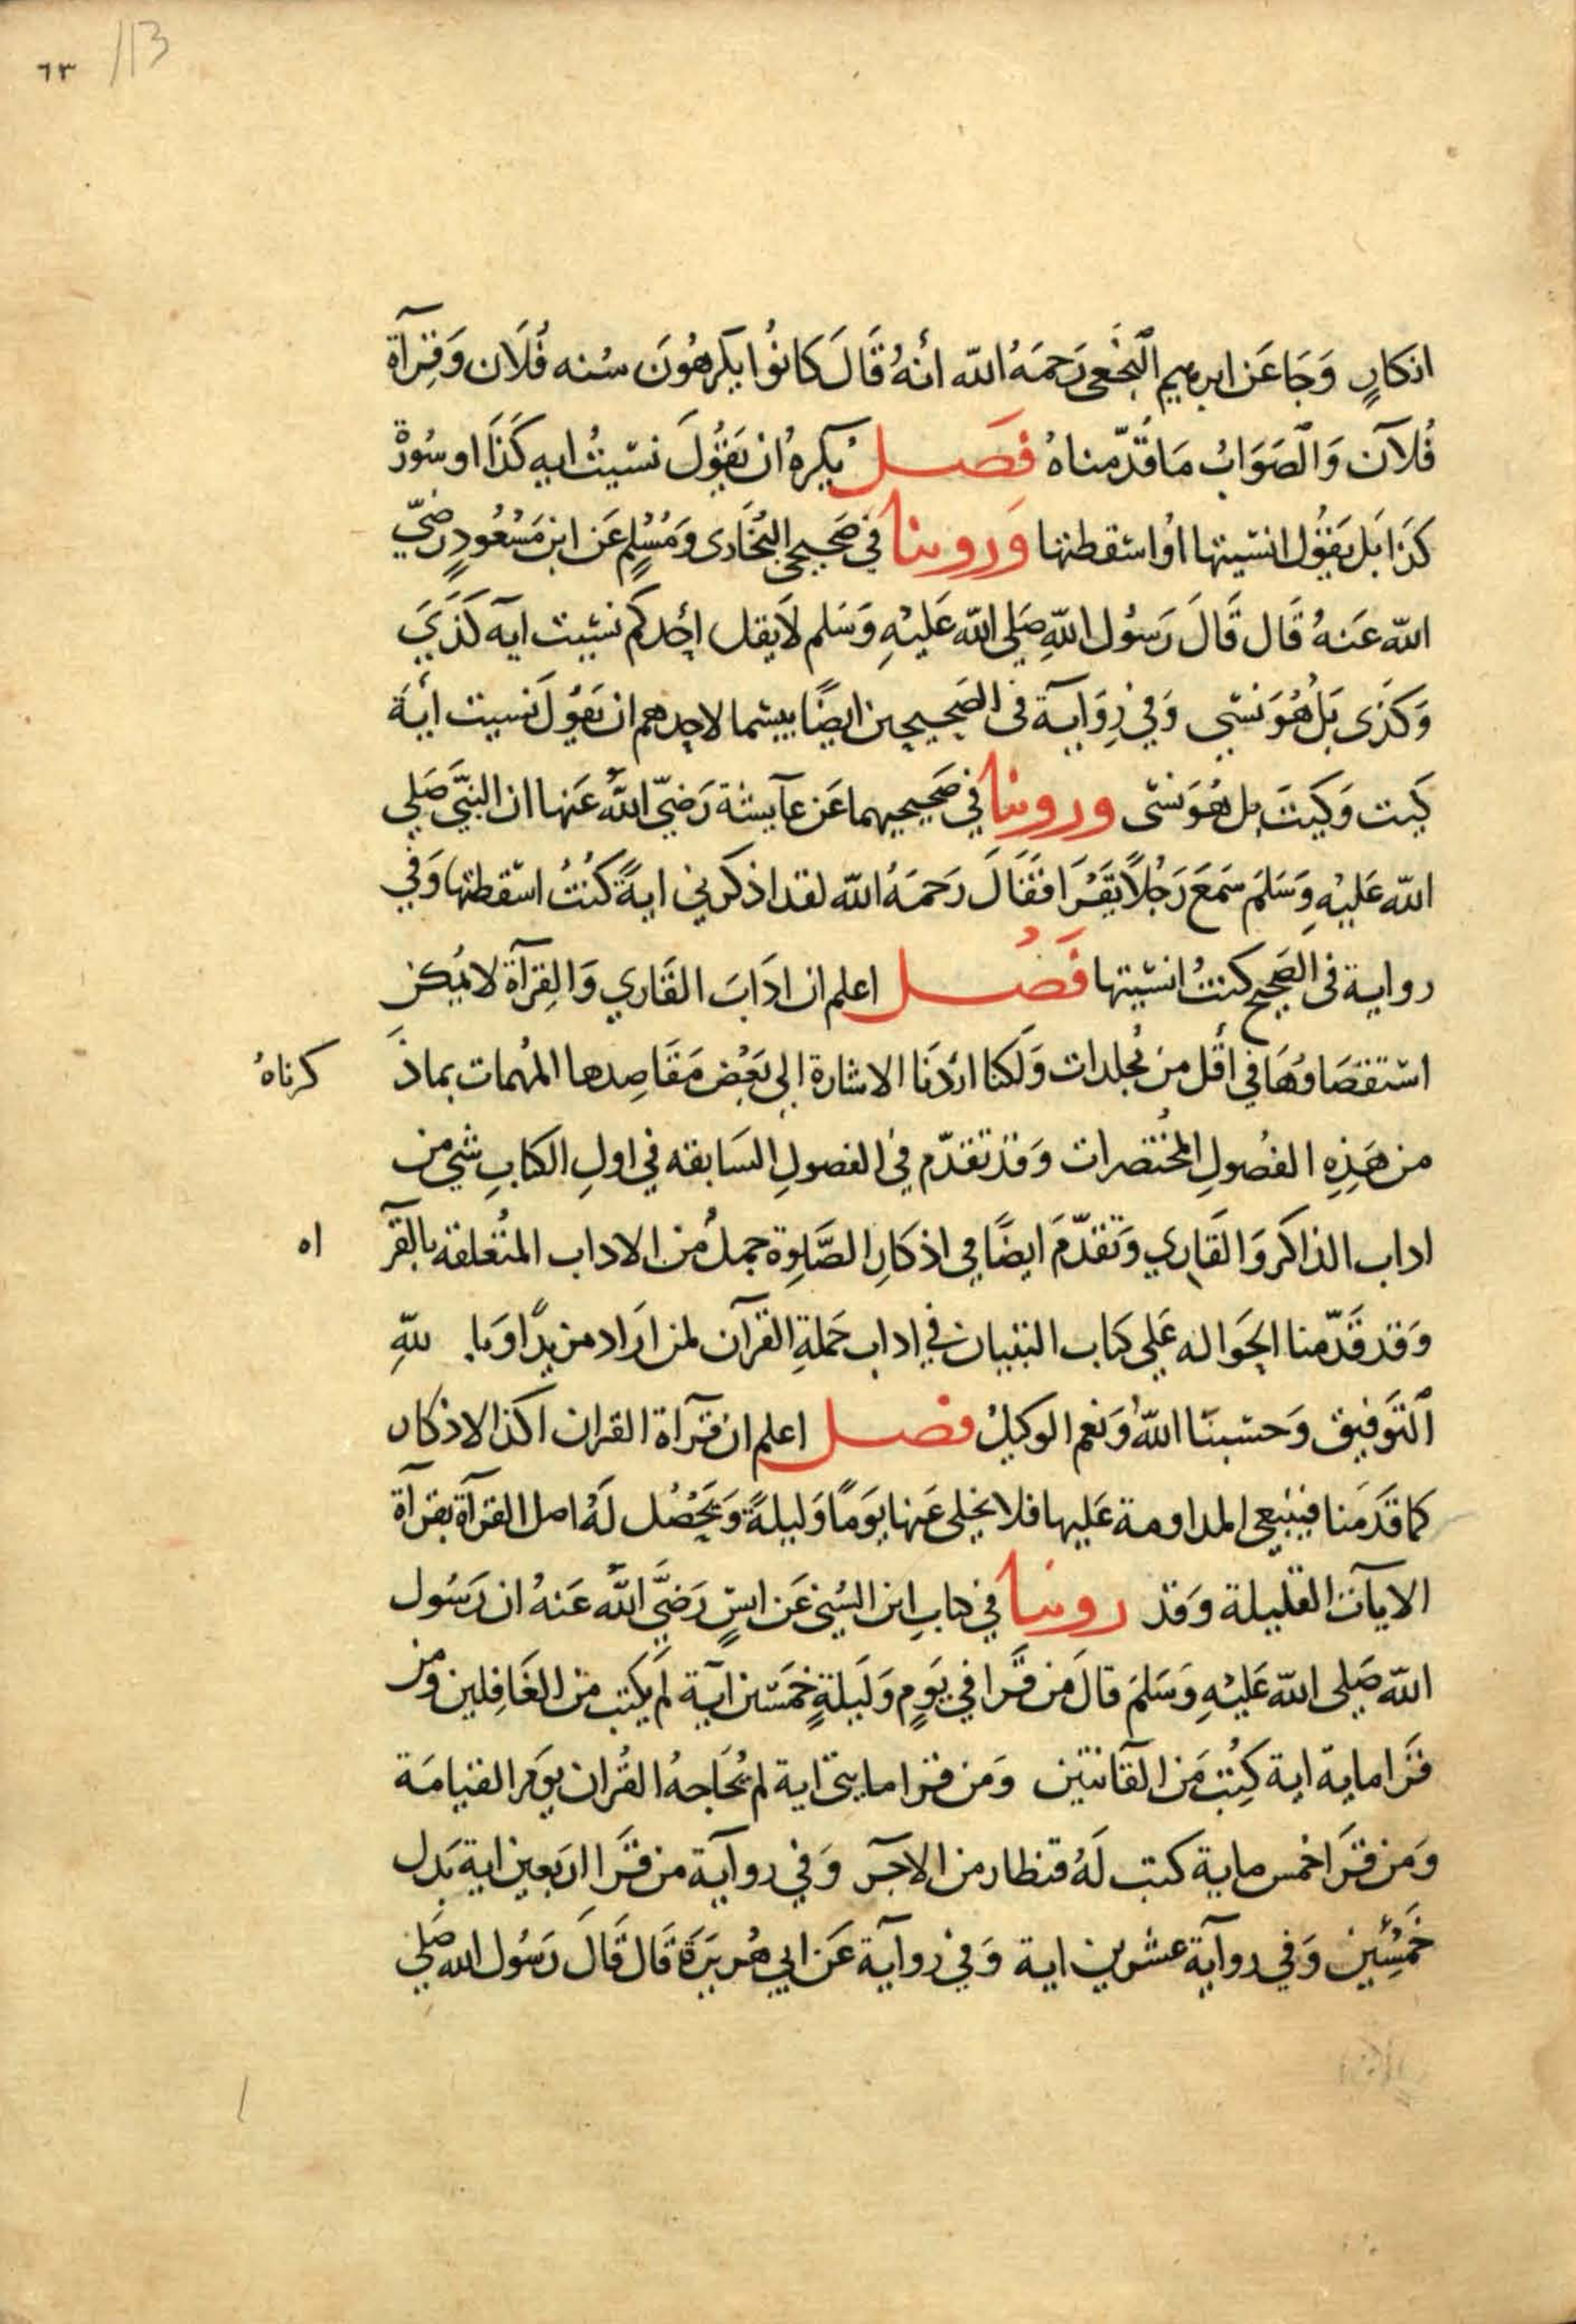 ٦٣ 113
انكارٍ وَجَا عَن ابرهيم النخَعي رَحمَهُ الله أنهُ قَالَ كانوُا يكرهُونَ سُنه فُلَان وَقِرَآة
فُلآن وَالصَوَابُ مَا قدّمناهُ فصَل يُكرهُ ان يَقوُلَ نسَيتُ ايه كَذَا او سُورة
كذَا بَل يَقوُل انسَيتها اوُ اسَقطتها وَروينا في صَحيحي البُخَاري وَمُسْلِمٍ عَن ابن مَسْعُودٍ رضَيّ
الله عَنهُ قَال قَالَ رَسوُل اللّهِ صَلى الله عَليْهِ وَسَلم لَا يقل احَدكم نسَيت آيه كَذَيَ
وَكَذَى بَلْ هُوَ نسّى وَفي رِوَايَة فى الصَحيحين ايضًا بيسَما لاحدهم ان يَقوُلَ نسيت أيَة
كَيت وَكَيتَ بل هُوَ نسّى وروينا في صَحيحيهما عَن عآيشة رَضيّ اللهُ عَنها ان النبيَّ صَلى
الله عَليْهِ وَسَلمَ سَمعَ رَجُلاً يَقرَا فقَالَ رَحمَهُ الله لقد اذكرني ايةً كنتُ اسَقطتها وَفي
رواية فى الصَحيح كنتُ انسَيتها فَصُل اعلم ان ادَابَ القَاري وَالقِرآة لا يمُكن
استقصَاوُهَا في أقل من مُجلدات وَلكنا ارَدنَا الاشارة إلى بَعْض مَقَاصِدها المُهمات بماذَ كرناهُ
من هَذِهِ الفصُولِ المُختصَرات وَقد تقدّم في الفصولِ السَابقه في اولِ الكتابِ شي من
اداب الذاكر وَالقَاري وَتقدّمَ ايضًا في اذكارِ الصَّلوة جملٌ من الاداب المتُعلقه بالقرآ اه
وَقد قَدّمنا الحَواله عَلى كتاب التبيان في اداب حَملةِ القرآن لمن ارَاد مزيدًا وَبا للّهِ
التوَفيق وَحسَبنَا اللهُ وَنعم الوكيلُ فصل اعلم ان قرَآة القران اكد الاذكار
كما قَدَمنا فينبغي المداومة عَليها فلا يخلى عَنها يَومًا وَليلةً وَيَحْصُل لَهُ اصل القرآة بقرآة
الايات القليلة وَقد روينا في كتابِ ابن السُني عَن انسٍ رَضيَّ اللهُ عَنهُ ان رَسُول
الله صَلى الله عَليْهِ وَسَلمَ قالَ مَن قَرا في يَومٍ وَلَيلةٍ خمَسَين آيَة لَم يكتب من الغَافِلين وَمن
قَرا مايه اية كِتُبَ مَن القَانتين وَمن قرا مايتي اية لم يُحَاجهُ القُران يَومَ القيامَة
وَمن قرَا خمس ماية كتب لَهُ قنطار من الاجَر وَفي روآيَة من قرَا اربَعين اية بَدل
خَمسُين وَفي روآية عشرين اية وَفي روآية عَن ابي هُريَرَة قَال قَالَ رَسوُل الله صَلى